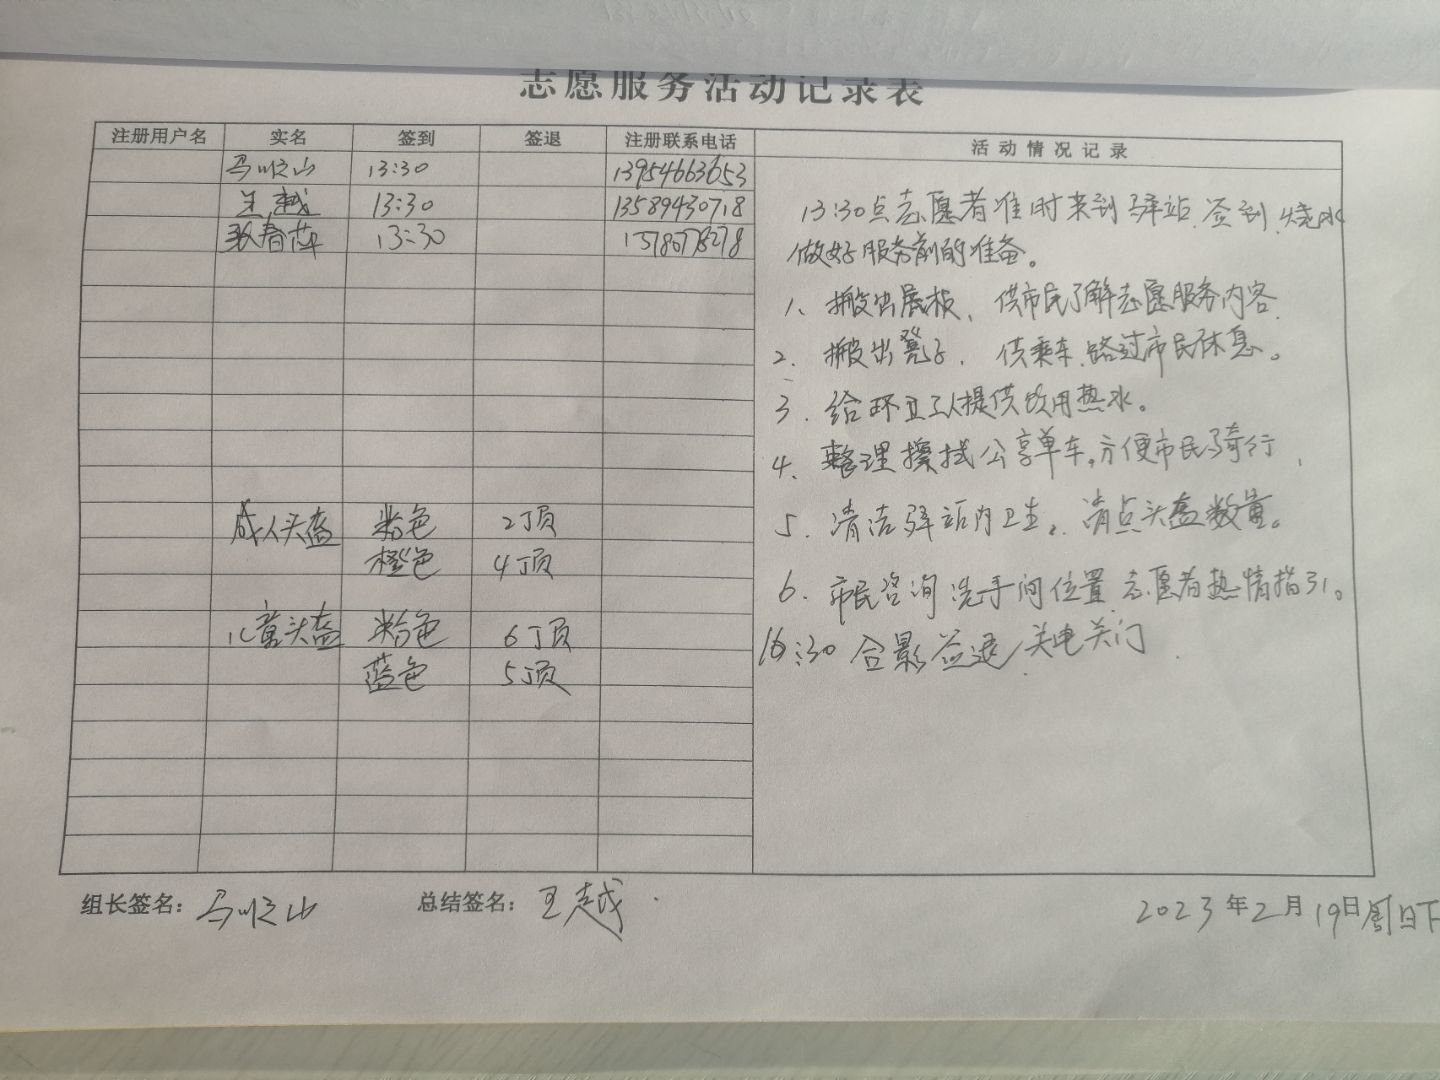 志愿服务活动记录表
注册用户名 实名 签到 签退 注册联系电话 活动情况记录
马顺山 13:30 13954663653
王越 13:30 13589430718
春萍 13:30
13:30点志愿者准时来到驿站.签到.烧水
做好服务前的准备。
1、搬出展板、供市民了解志愿服务内容.
2、搬出凳子.供乘车.路过市民休息。
3、给环卫工人提供饮用热水。
4、整理擦拭公享单车,方便市民骑行.
5、清洁驿站内卫生。清点头盔数量。
6、市民咨询洗手间位置.志愿者热情指引。
16:30合影签退关电关门
成人头盔 粉色 2顶
橙色 4顶
儿童头盔 粉色 6顶
蓝色 5顶
组长签名：马顺山 总结签名：王越
2023年2月19日周日下